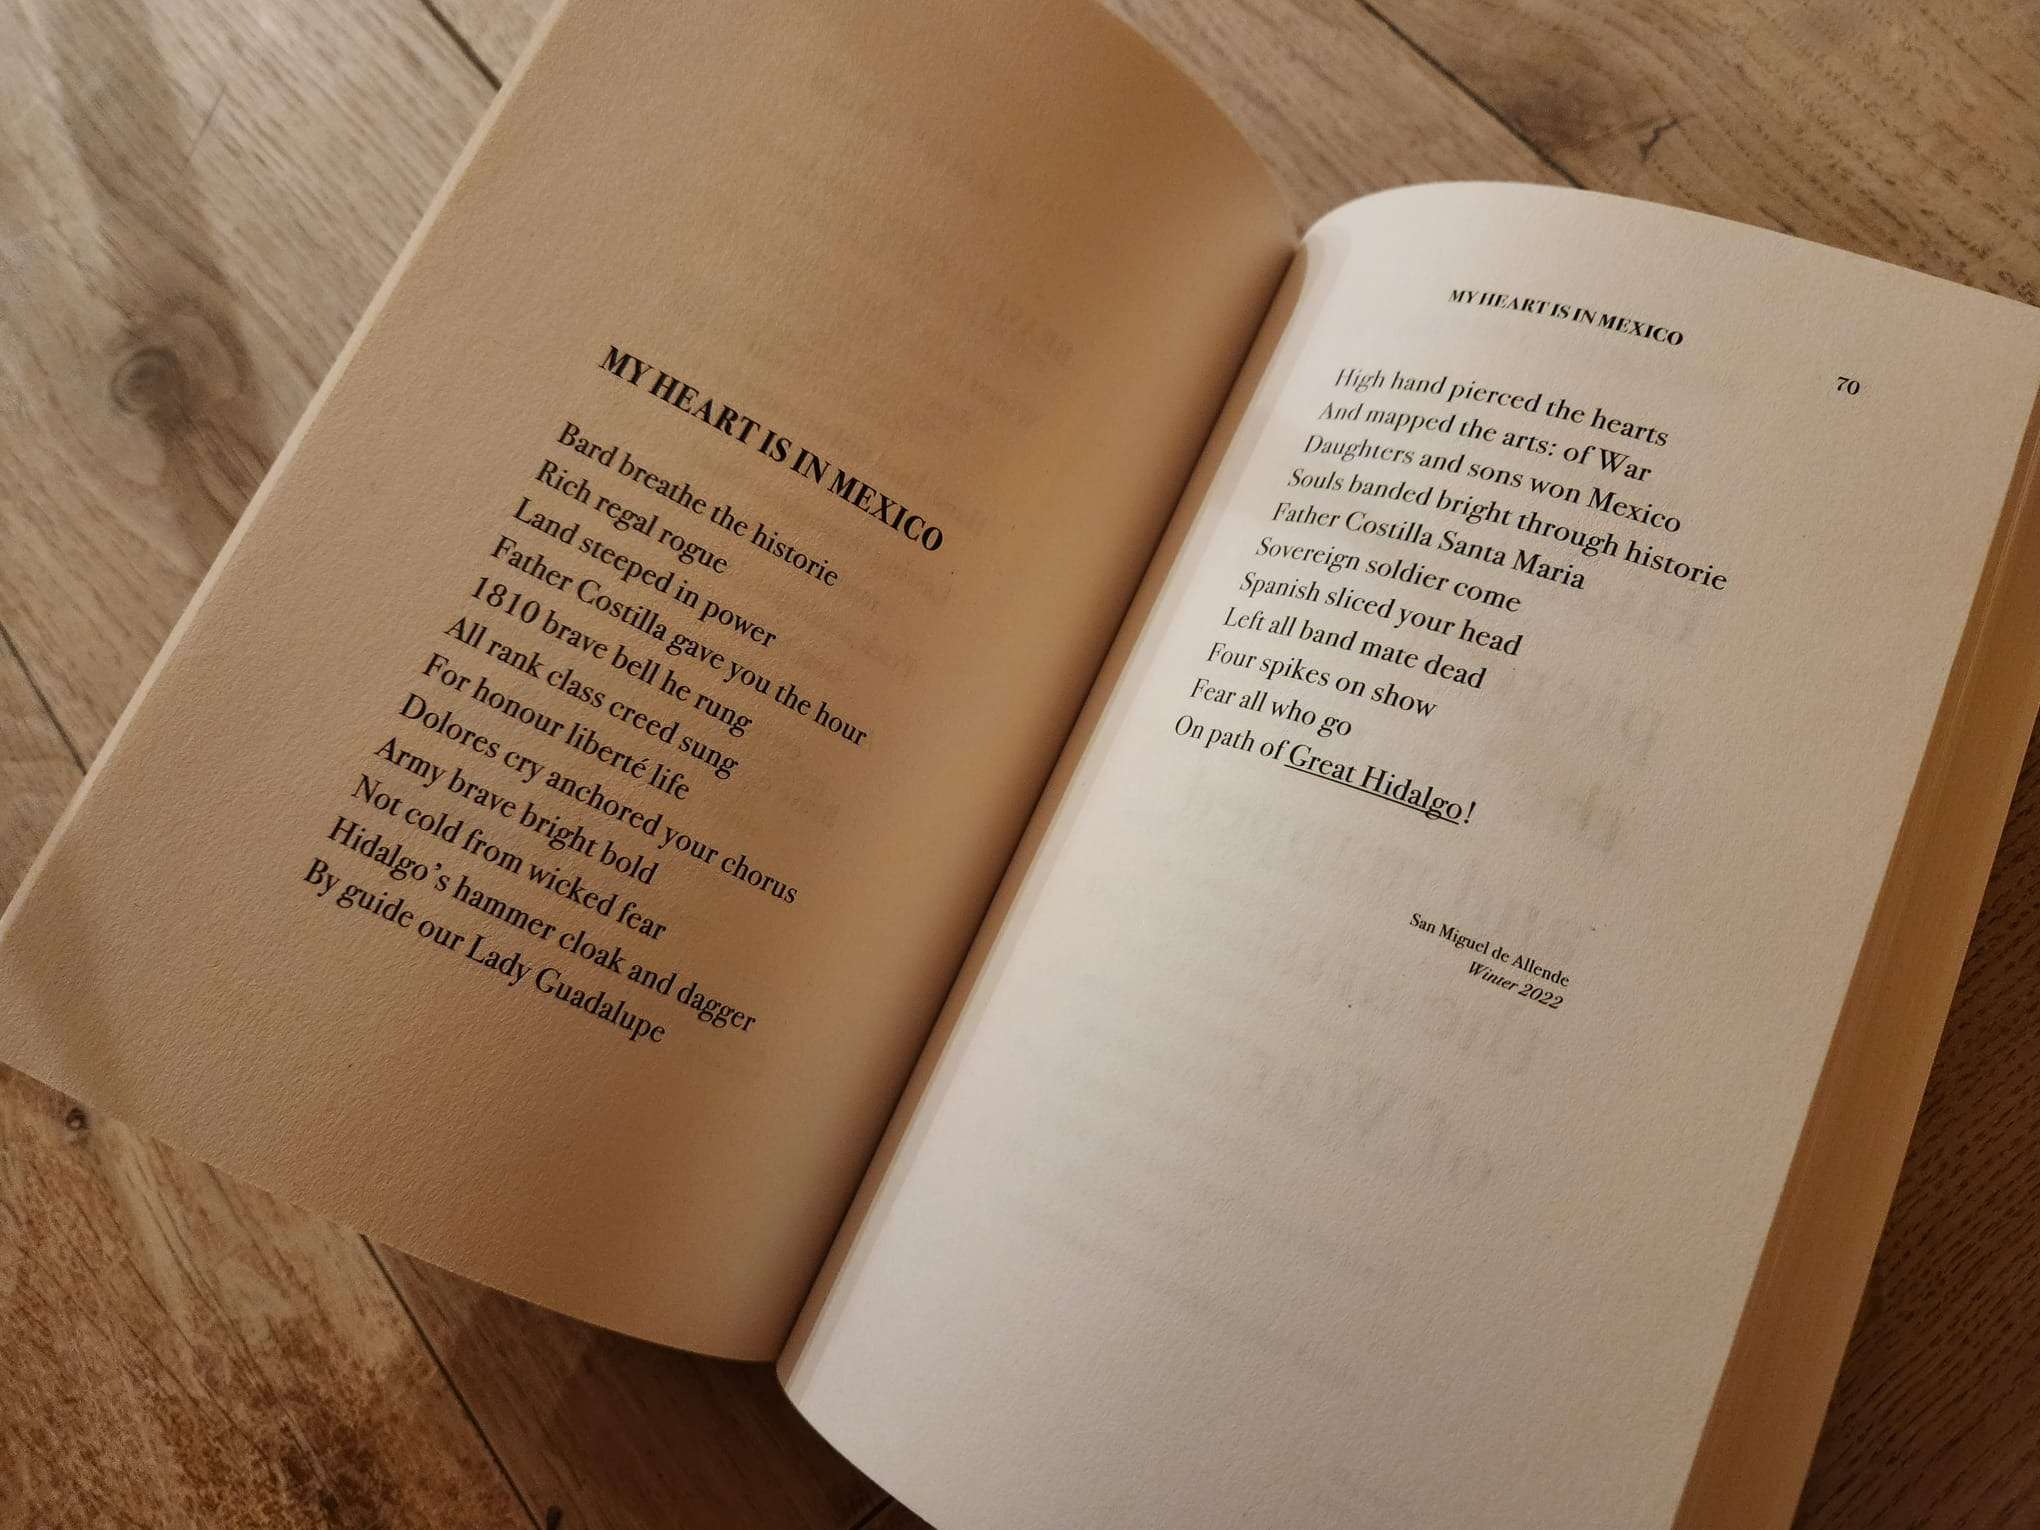 MY HEART IS IN MEXICO
Bard breathe the historie
Rich regal rogue
Land steeped in power
Father Costilla gave you the hour
1810 brave bell he rung
All rank class creed sung
For honour liberté life
Dolores cry anchored your chorus
Army brave bright bold
Not cold from wicked fear
Hidalgo’s hammer cloak and dagger
By guide our Lady Guadalupe
MY HEART IS IN MEXICO
70
High hand pierced the hearts
And mapped the arts: of War
Daughters and sons won Mexico
Souls banded bright through historie
Father Costilla Santa Maria
Sovereign soldier come
Spanish sliced your head
Left all band mate dead
Four spikes on show
Fear all who go
On path of Great Hidalgo!
San Miguel de Allende
Winter 2022